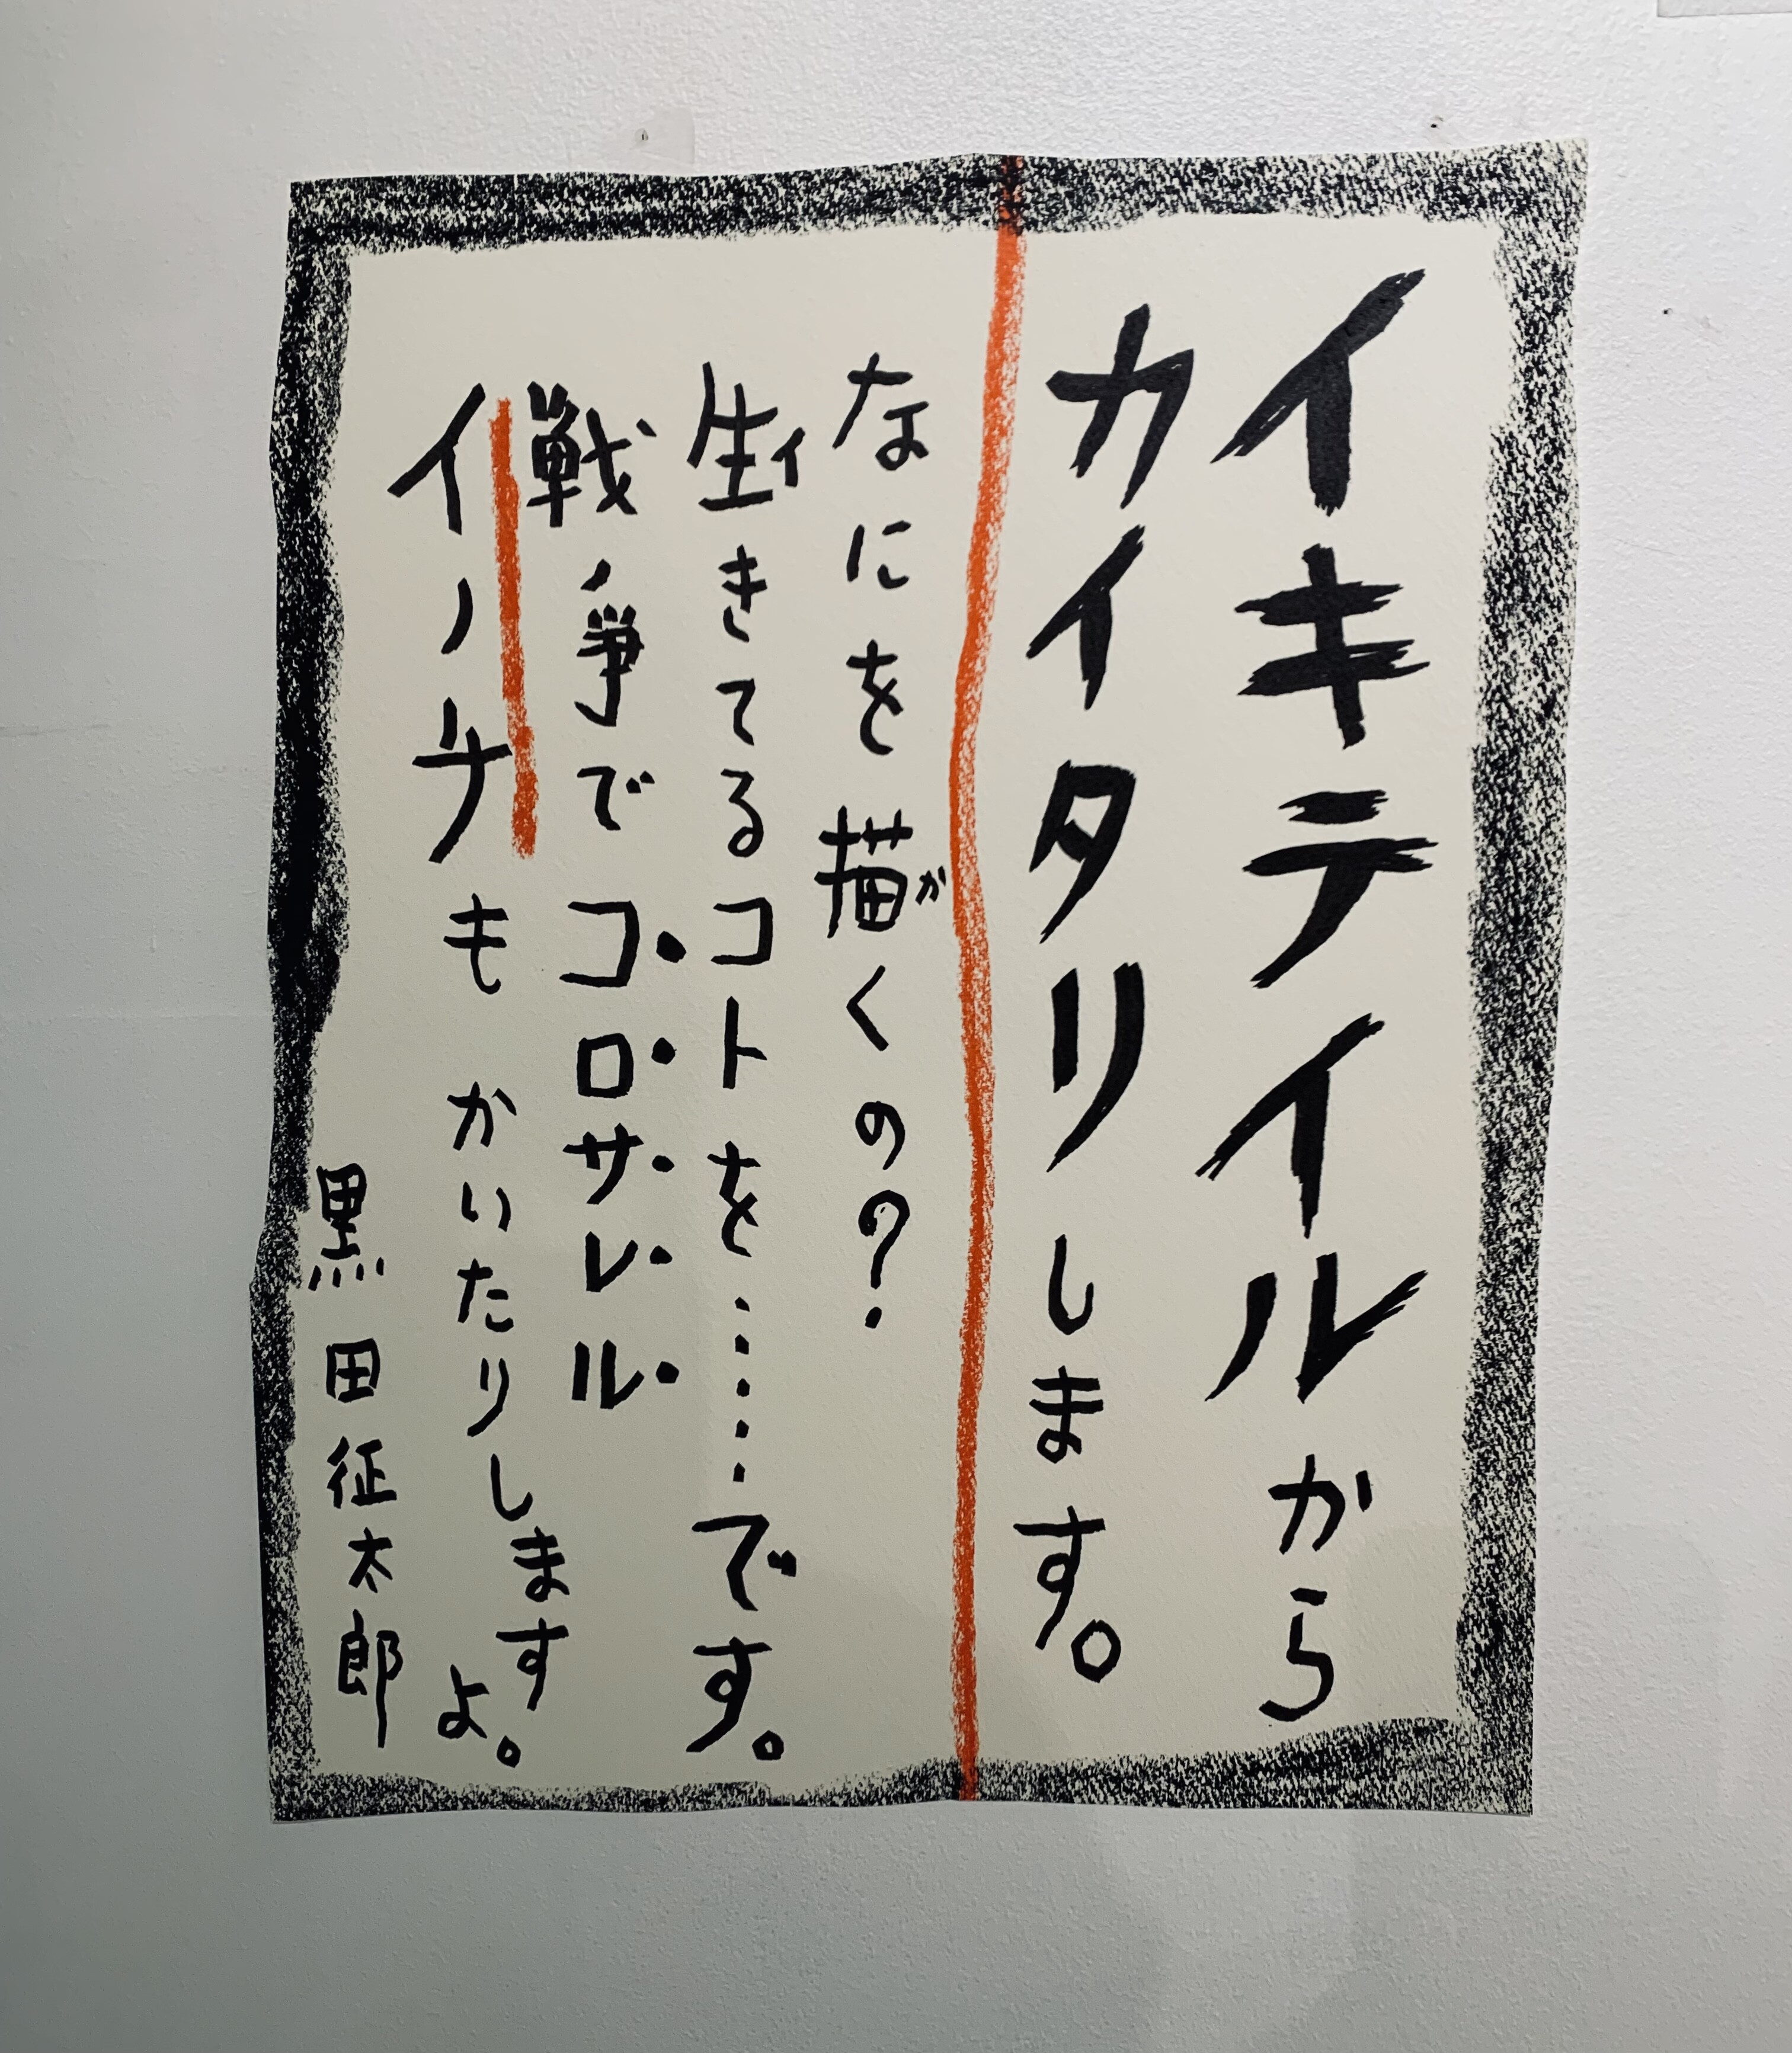 イキテイルから
カイタリします。
なにを描くの?
生きてるコトを……です。
戦争でコロサレル
イノチもかいたりしますよ。
黒田征太郎